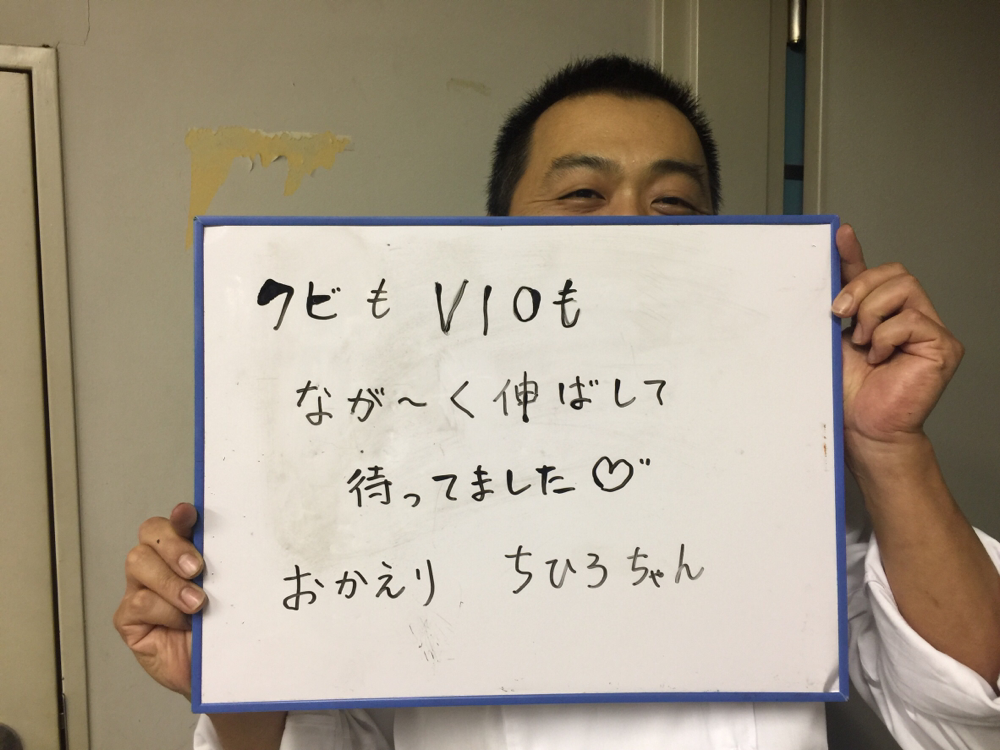 クビも VIOも
なが〜く伸ばして
待ってました♡
おかえり ちひろちゃん